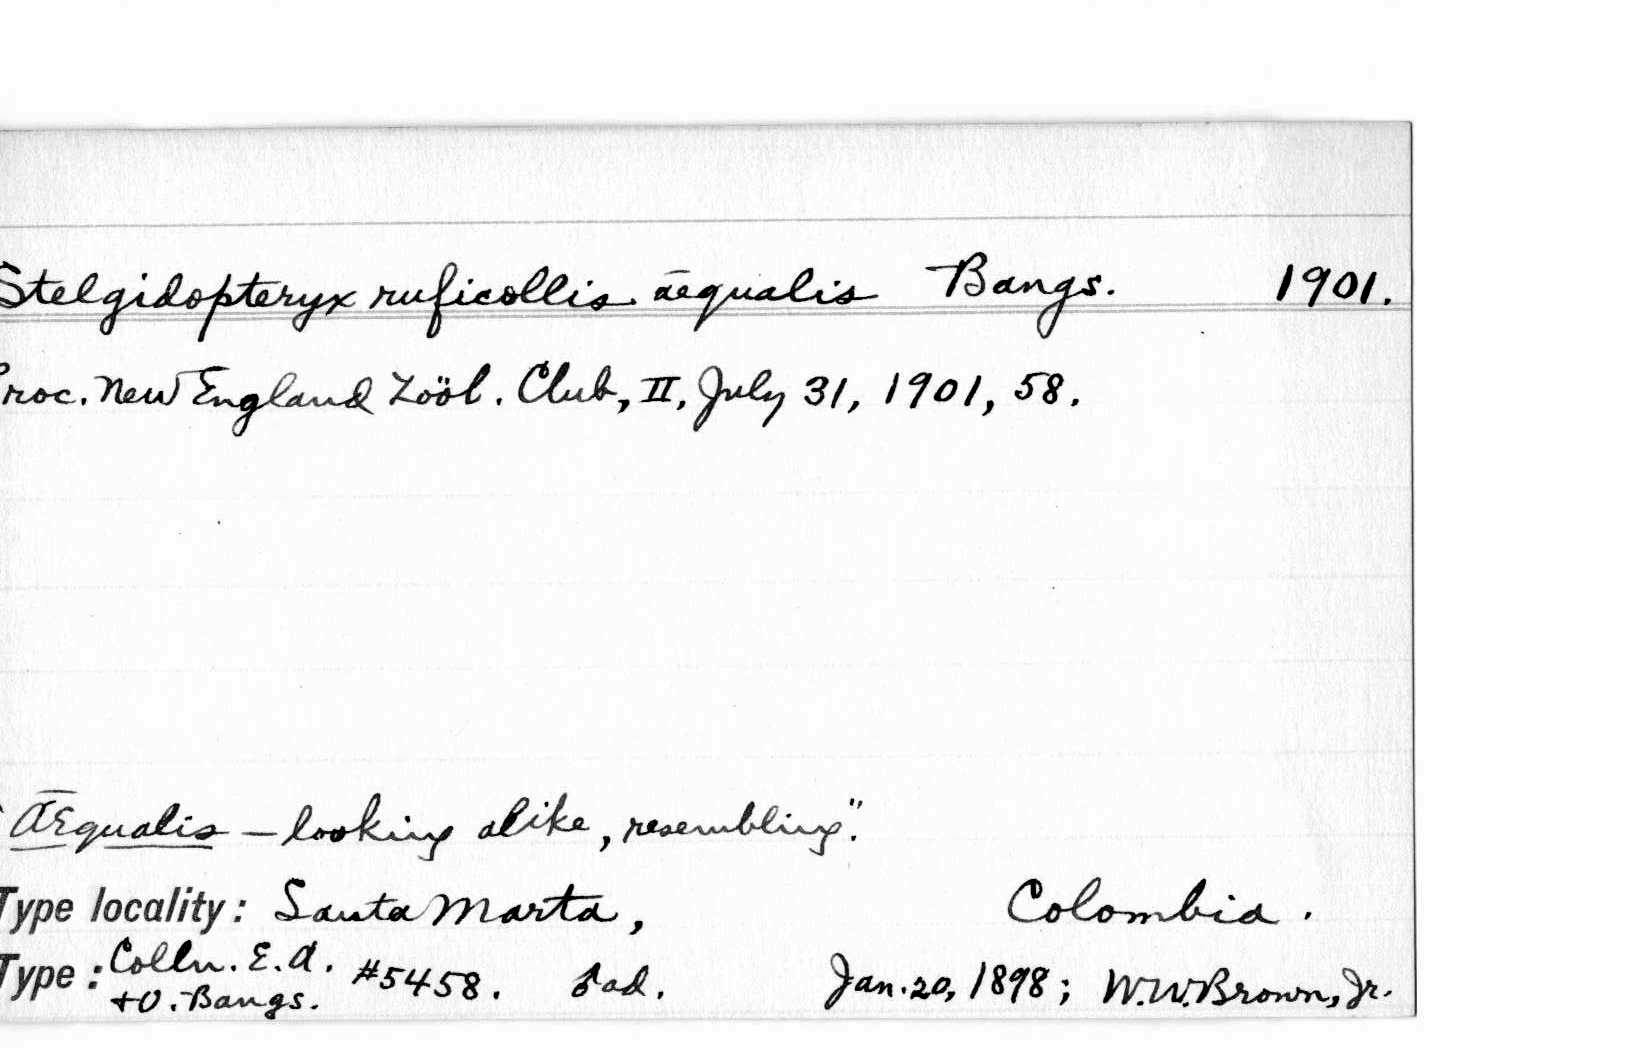 Stelgidopteryx ruficollis aequalis Bangs. 1901.
Proc. New England Zoöl. Club, II, July 31, 1901, 58.
"Æqualis — looking alike, resembling."
Type locality: Santa Marta, Colombia.
Type: Colln. E.A. + O. Bangs. #5458. ♂ ad. Jan. 20, 1898; W.W. Brown, Jr.